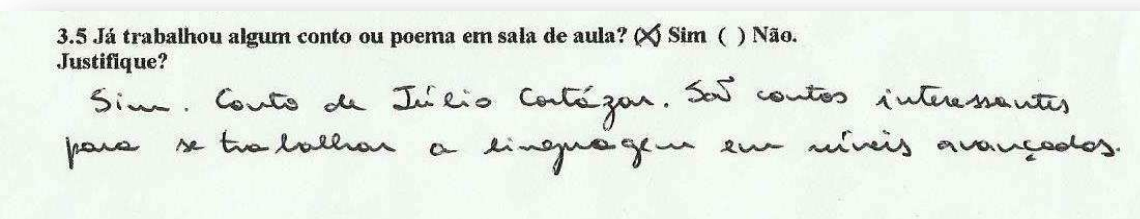 3.5 Já trabalhou algum conto ou poema em sala de aula? (X) Sim ( ) Não.
Justifique?
Sim. Conto de Júlio Cortázar. São contos interessantes
para se trabalhar a linguagem em níveis avançados.